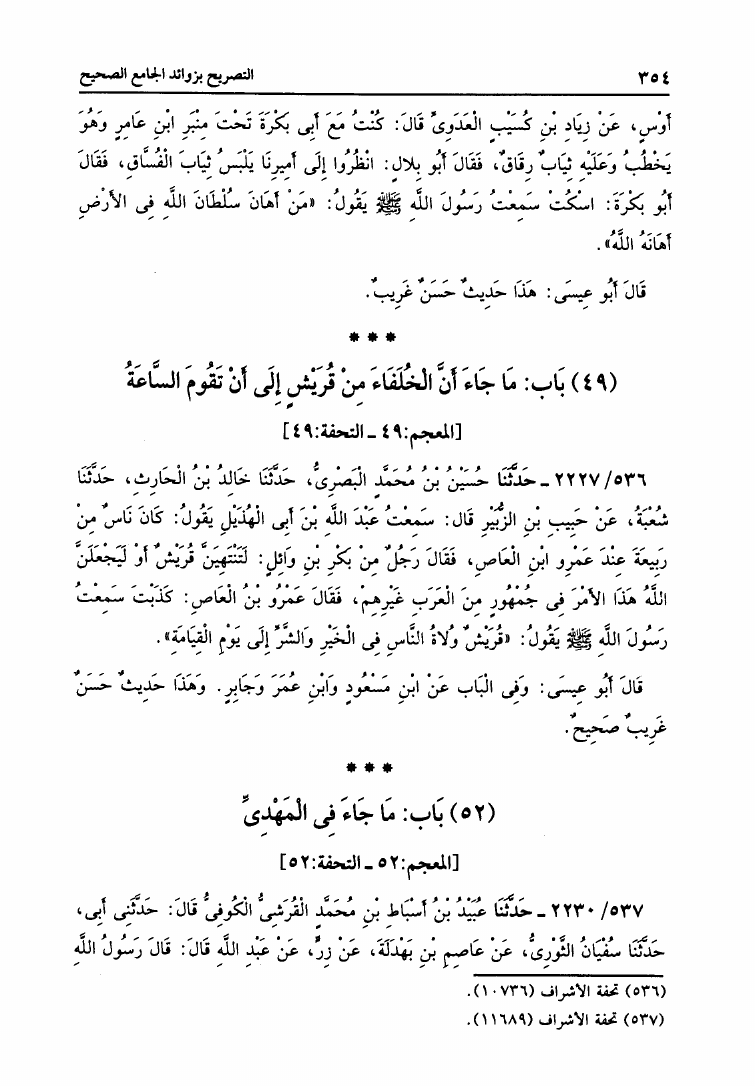 ٣٥٤ التصريح بزوائد الجامع الصحيح
أَوْسٍ، عَنْ زِيَادِ بْنِ كُسَيْبٍ الْعَدَوِىِّ قَالَ: كُنْتُ مَعَ أَبِى بَكْرَةَ تَحْتَ مِنْبَرِ ابْنِ عَامِرٍ وَهُوَ
يَخْطُبُ وَعَلَيْهِ ثِيَابٌ رِقَاقٌ، فَقَالَ أَبُو بِلَالٍ: انْظُرُوا إِلَى أَمِيرِنَا يَلْبَسُ ثِيَابَ الْفُسَّاقِ، فَقَالَ
أَبُو بَكْرَةَ: اسْكُتْ سَمِعْتُ رَسُولَ اللَّهِ ﷺ يَقُولُ: «مَنْ أَهَانَ سُلْطَانَ اللَّهِ فِى الأَرْضِ
أَهَانَهُ اللَّهُ».
قَالَ أَبُو عِيسَى: هَذَا حَدِيثٌ حَسَنٌ غَرِيبٌ.
* * *
(٤٩) بَاب: مَا جَاءَ أَنَّ الْخُلَفَاءَ مِنْ قُرَيْشٍ إِلَى أَنْ تَقُومَ السَّاعَةُ
[المعجم:٤٩ ـ التحفة:٤٩]
٢٢٢٧/٥٣٦ ـ حَدَّثَنَا حُسَيْنُ بْنُ مُحَمَّدٍ الْبَصْرِىُّ، حَدَّثَنَا خَالِدُ بْنُ الْحَارِثِ، حَدَّثَنَا
شُعْبَةُ، عَنْ حَبِيبِ بْنِ الزُّبَيْرِ قَالَ: سَمِعْتُ عَبْدَ اللَّهِ بْنَ أَبِى الْهُذَيْلِ يَقُولُ: كَانَ نَاسٌ مِنْ
رَبِيعَةَ عِنْدَ عَمْرِو ابْنِ الْعَاصِ، فَقَالَ رَجُلٌ مِنْ بَكْرِ بْنِ وَائِلٍ: لَتَنْتَهِيَنَّ قُرَيْشٌ أَوْ لَيَجْعَلَنَّ
اللَّهُ هَذَا الأَمْرَ فِى جُمْهُورٍ مِنَ الْعَرَبِ غَيْرِهِمْ، فَقَالَ عَمْرُو بْنُ الْعَاصِ: كَذَبْتَ سَمِعْتُ
رَسُولَ اللَّهِ ﷺ يَقُولُ: «قُرَيْشٌ وُلَاةُ النَّاسِ فِى الْخَيْرِ وَالشَّرِّ إِلَى يَوْمِ الْقِيَامَةِ».
قَالَ أَبُو عِيسَى: وَفِى الْبَاب عَنْ ابْنِ مَسْعُودٍ وَابْنِ عُمَرَ وَجَابِرٍ. وَهَذَا حَدِيثٌ حَسَنٌ
غَرِيبٌ صَحِيحٌ.
* * *
(٥٢) بَاب: مَا جَاءَ فِى الْمَهْدِىِّ
[المعجم:٥٢ ـ التحفة:٥٢]
٢٢٣٠/٥٣٧ ـ حَدَّثَنَا عُبَيْدُ بْنُ أَسْبَاطِ بْنِ مُحَمَّدٍ الْقُرَشِىُّ الْكُوفِىُّ قَالَ: حَدَّثَنِى أَبِى،
حَدَّثَنَا سُفْيَانُ الثَّوْرِىُّ، عَنْ عَاصِمِ بْنِ بَهْدَلَةَ، عَنْ زِرٍّ، عَنْ عَبْدِ اللَّهِ قَالَ: قَالَ رَسُولُ اللَّهِ
(٥٣٦) تحفة الأشراف (١٠٧٣٦).
(٥٣٧) تحفة الأشراف (١١٦٨٩).